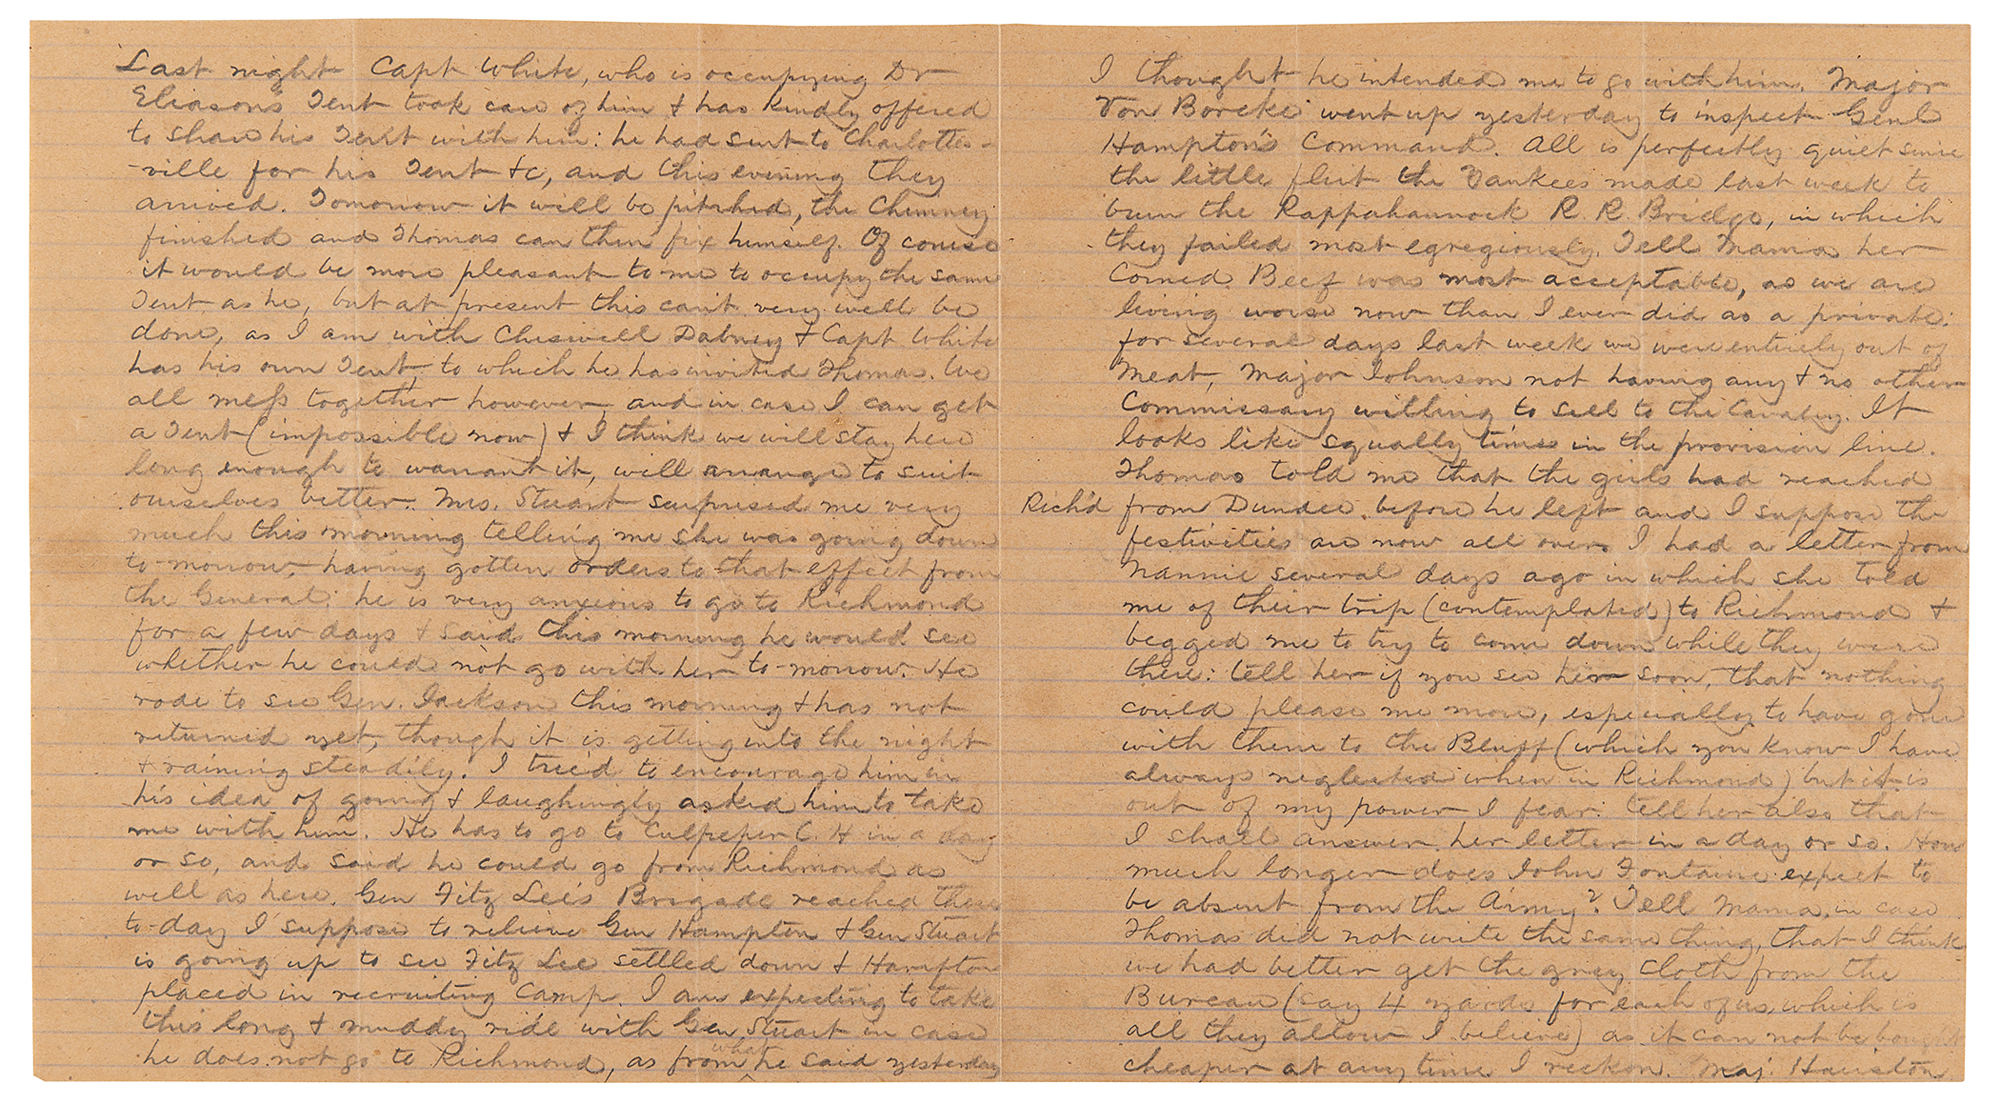 Last night Capt White, who is occupying Dr
Eliason's Tent took care of him & has kindly offered
to share his Tent with him: he had sent to Charlottes-
-ville for his Tent &c, and this evening they
arrived. Tomorrow it will be pitched, the Chimney
finished and Thomas can then fix himself. Of course
it would be more pleasant to me to occupy the same
Tent as he, but at present this can't very well be
done, as I am with Chiswell Dabney & Capt White
has his own Tent to which he has invited Thomas. We
all mess together however, and in case I can get
a Tent (impossible now) & I think we will stay here
long enough to warrant it, will arrange to suit
ourselves better. Mrs. Stuart surprised me very
much this morning telling me she was going down
to-morrow, having gotten orders to that effect from
the General: he is very anxious to go to Richmond
for a few days & said this morning he would see
whether he could not go with her to-morrow. He
rode to see Gen. Jackson this morning & has not
returned yet, though it is getting into the night
& raining steadily. I tried to encourage him in
his idea of going & laughingly asked him to take
me with him. He has to go to Culpeper C. H in a day
or so, and said he could go from Richmond as
well as here. Gen Fitz Lee's Brigade reached there
to-day I suppose to relieve Gen Hampton & Gen Stuart
is going up to see Fitz Lee settled down & Hampton
placed in recruiting camp. I am expecting to take
this long & muddy ride with Gen Stuart in case
he does not go to Richmond, as from what he said yesterday
I thought he intended me to go with him. Major
Von Borcke went up yesterday to inspect Genl
Hampton's Command. All is perfectly quiet since
the little flirt the Yankees made last week to
burn the Rappahannock R. R. Bridge, in which
they failed most egregiously. Tell Mama her
Corned Beef was most acceptable, as we are
living worse now than I ever did as a private:
for several days last week we were entirely out of
Meat, Major Johnson not having any & no other
Commissary willing to sell to the Cavalry. It
looks like squally times in the provision line.
Thomas told me that the girls had reached
Rich'd from Dundee, before he left and I suppose the
festivities are now all over. I had a letter from
Nannie several days ago in which she told
me of their trip (contemplated) to Richmond &
begged me to try to come down while they were
there: tell her if you see her soon, that nothing
could please me more, especially to have gone
with them to the Bluff (which you know I have
always neglected when in Richmond) but it is
out of my power I fear: tell her also that
I shall answer her letter in a day or so. How
much longer does John Fontaine expect to
be absent from the Army? Tell Mama, in case
Thomas did not write the same thing, that I think
we had better get the grey cloth from the
Bureau (say 4 yards for each of us, which is
all they allow I believe) as it can not be bought
cheaper at any time I reckon. Maj. Hairston